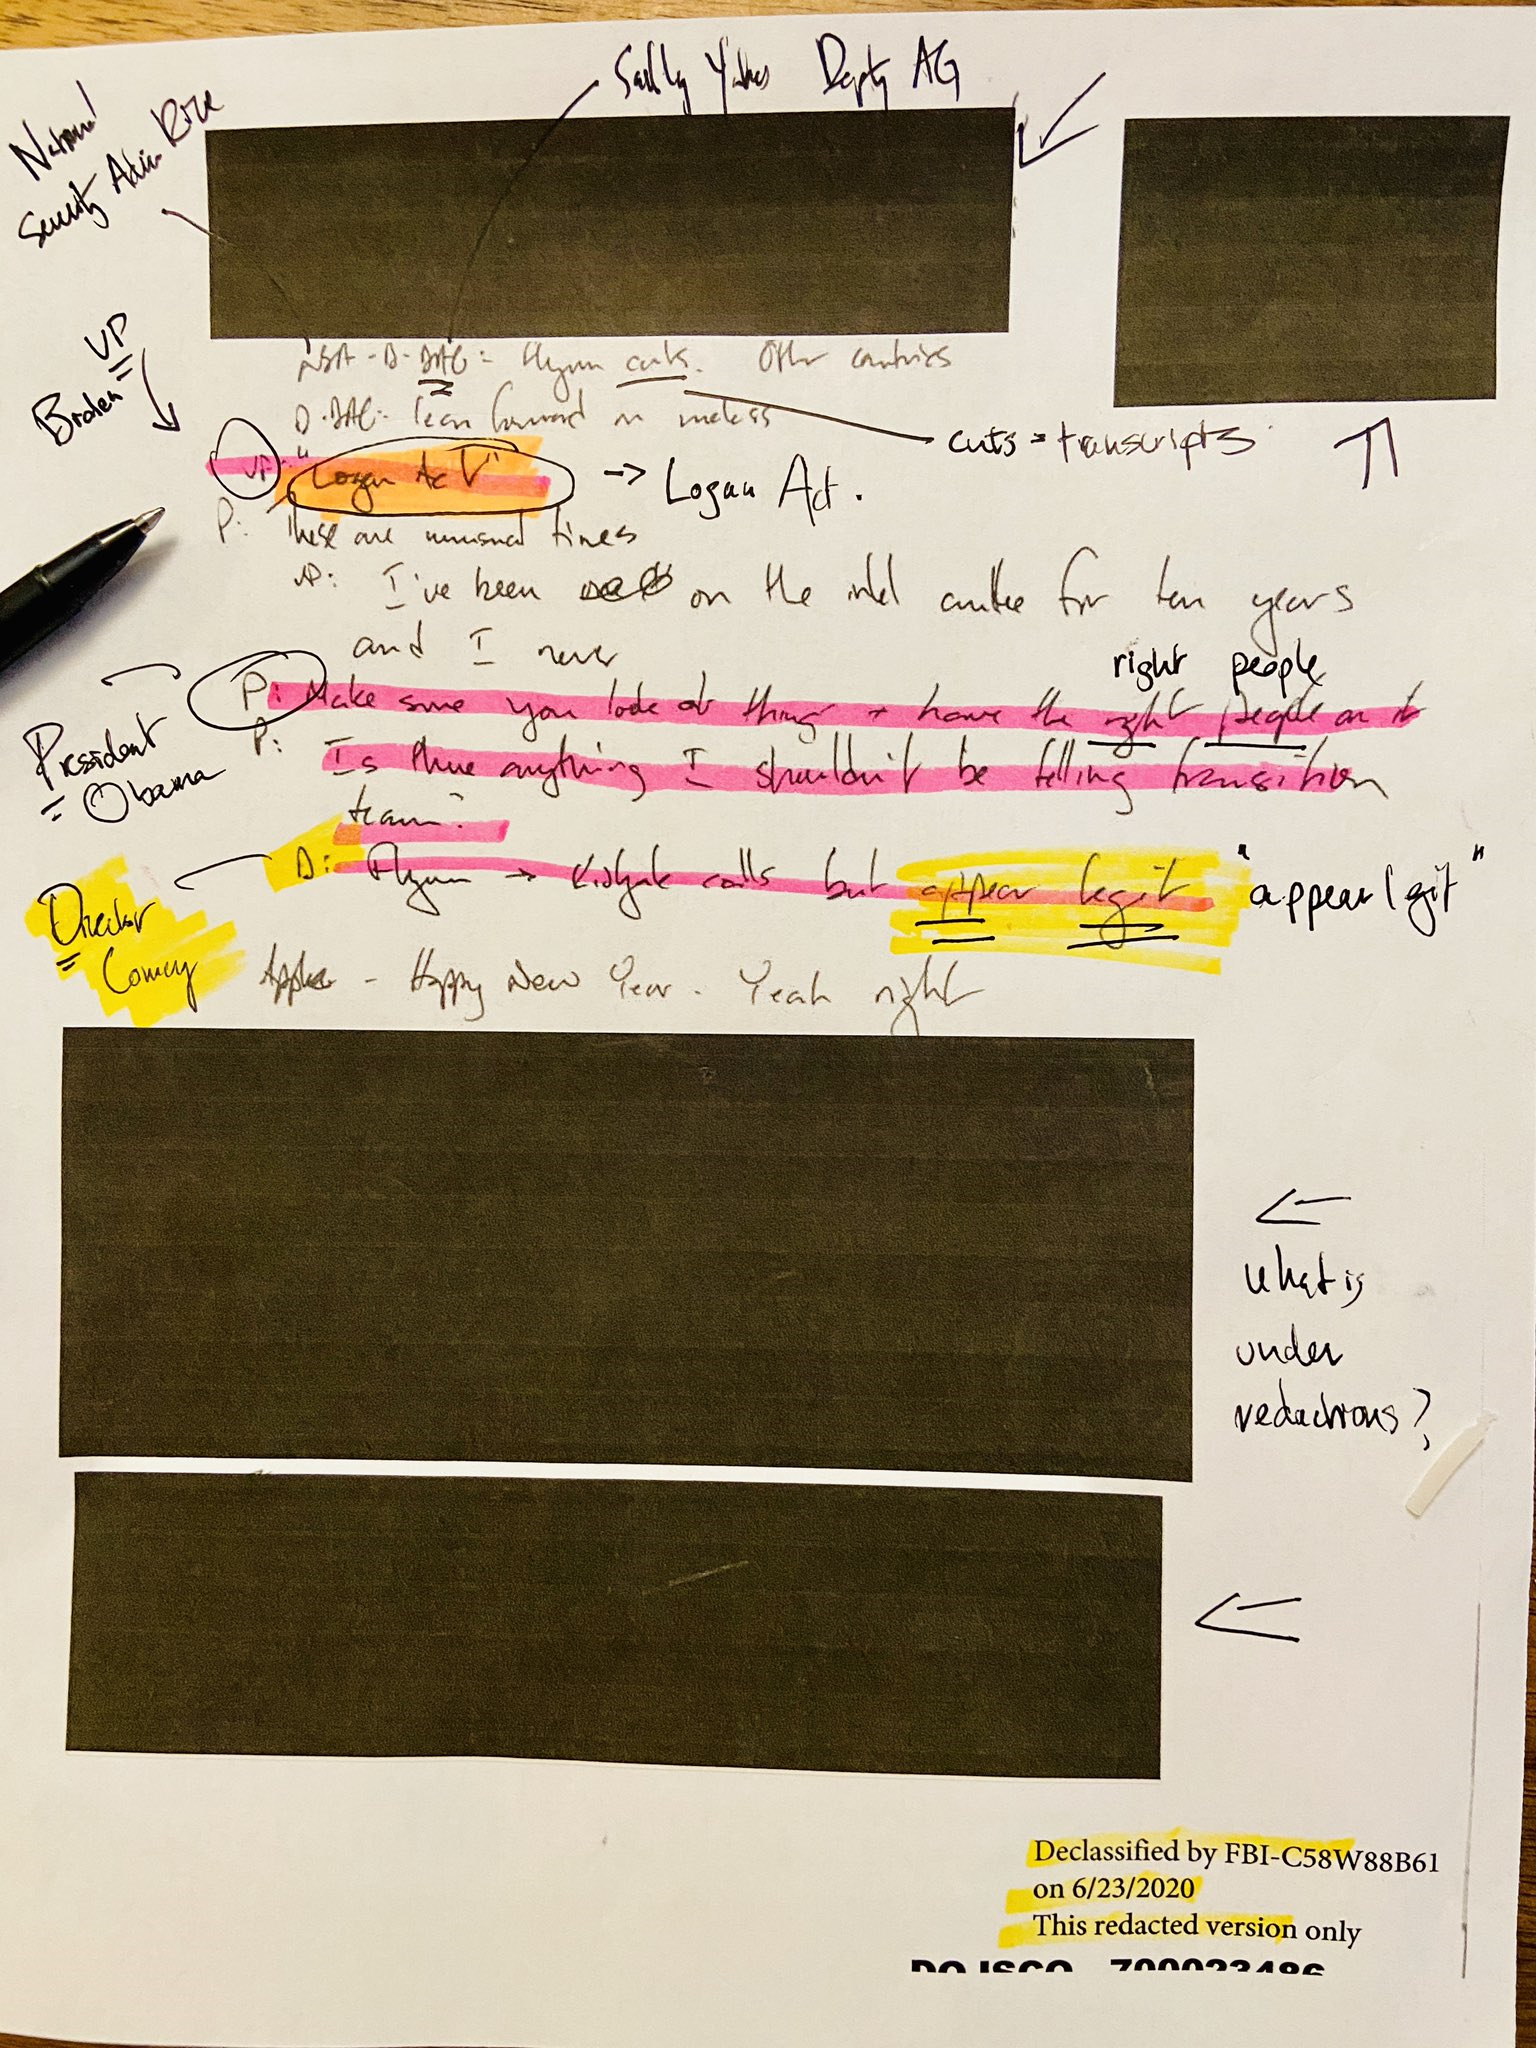 Sally Yates Depty AG
National
Security Advisor Rice
VP
Broden
NSA-D-DAG: Flynn cuts. Other countries
D-DAG: lean forward on unclass
cuts = transcripts
VP: "Logan Act" → Logan Act.
P: These are unusual times
VP: I've been on the intel cmttee for ten years
and I never
right people
P: Make sure you look at things + have the right people on it
President
= Obama
P: Is there anything I shouldn't be telling transition
team?
D: Flynn → Kislyak calls but appear legit "appear legit"
Director
Comey
- Happy New Year. Yeah right
What is
under
redactions?
Declassified by FBI-C58W88B61
on 6/23/2020
This redacted version only
DOJSCO - 700023486